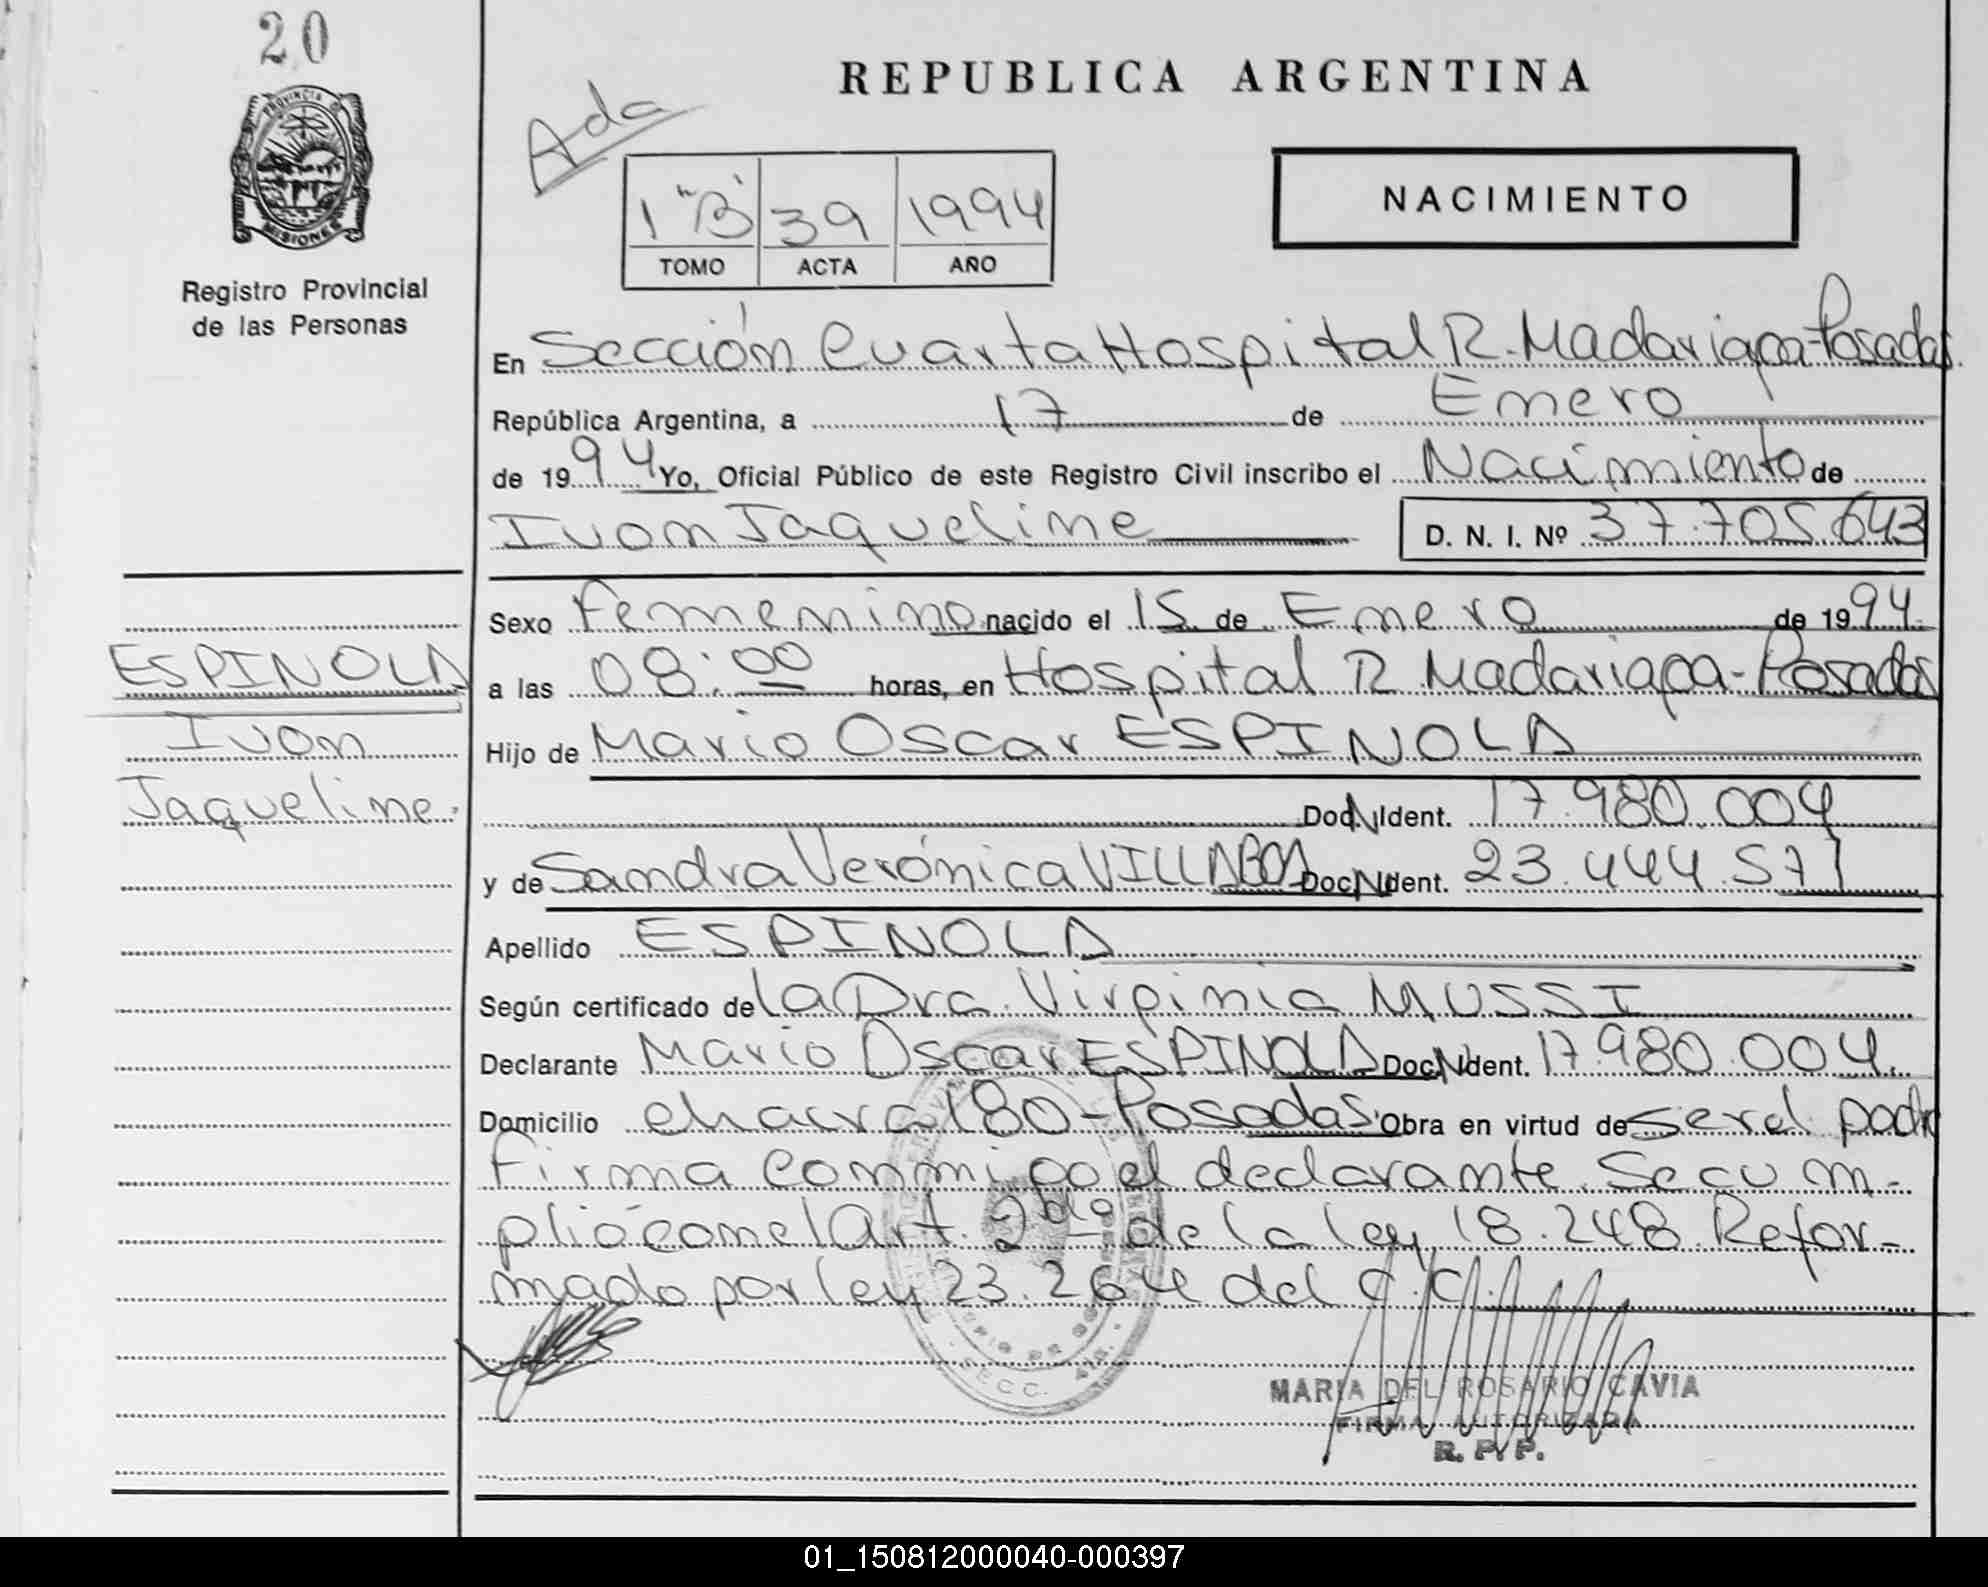 20
PROVINCIA D
MISIONES
Registro Provincial
de las Personas
ESPINOLA
Ivon
Jaqueline.
REPUBLICA ARGENTINA
Ada
1 "B" 39 1994
TOMO ACTA AÑO
NACIMIENTO
En Sección Cuarta Hospital R. Madariaga-Posadas.
República Argentina, a 17 de Enero
de 1994 Yo, Oficial Público de este Registro Civil inscribo el Nacimiento de
Ivon Jaqueline D. N. I. Nº 37.705.643
Sexo Femenino nacido el 15 de Enero de 1994.
a las 08:00 horas, en Hospital R. Madariaga-Posadas
Hijo de Mario Oscar ESPINOLA
Doc N Ident. 17.980.004
y de Sandra Verónica VILLALBA Doc N Ident. 23.444.571
Apellido ESPINOLA
Según certificado de la Dra. Virginia MUSSI
Declarante Mario Oscar ESPINOLA Doc. N Ident. 17.980.004.
Domicilio chacra 180-Posadas. Obra en virtud de ser el padre
Firma conmigo el declarante. Se cum-
plió con el Art. 2do de la ley 18.248 Refor-
mado por ley 23.264 del C.C.
SECC. 4ta.
MARIA DEL ROSARIO CAVIA
FIRMA AUTORIZADA
R. P. P.
01_150812000040-000397